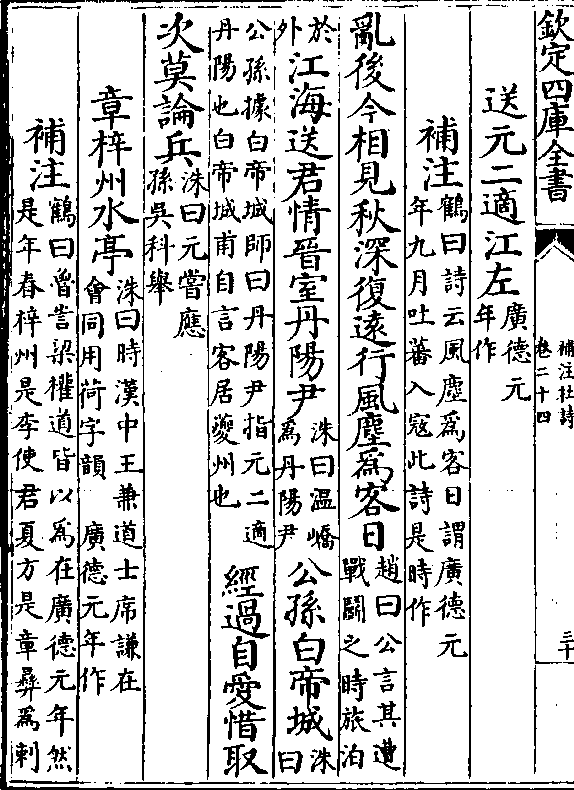 欽定四庫全書
補注杜詩
卷二十四
三十
送元二適江左廣德元年作
補注鶴曰詩云風塵爲客日謂廣德元年九月吐蕃入寇此詩是時作
亂後今相見秋深復遠行風塵爲客日趙曰公言其遭戰鬭之時旅泊
於外江海送君情晉室丹陽尹洙曰温嶠爲丹陽尹公孫白帝城洙曰
公孫據白帝城師曰丹陽尹指元二適丹陽也白帝城甫自言客居夔州也經過自愛惜取
次莫論兵洙曰元嘗應孫吳科舉
章梓州水亭洙曰時漢中王兼道士席謙在會同用荷字韻 廣德元年作
補注鶴曰魯訔梁權道皆以爲在廣德元年然是年春梓州是李使君夏方是章彝爲刺